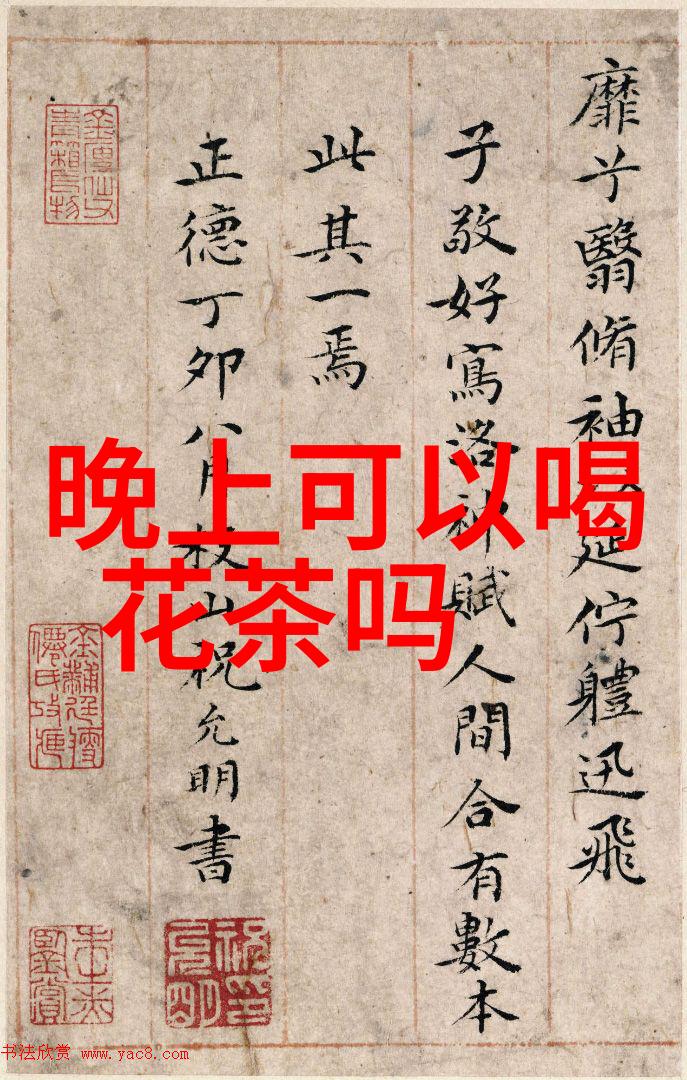 靡兮翳脩袖延佇體迅飛
子敬好寫洛神賦人間合有數本
此其一焉
正德丁卯八月枝山祝允明書
晚上可以喝
花茶吗
书法欣赏 www.yac8.com